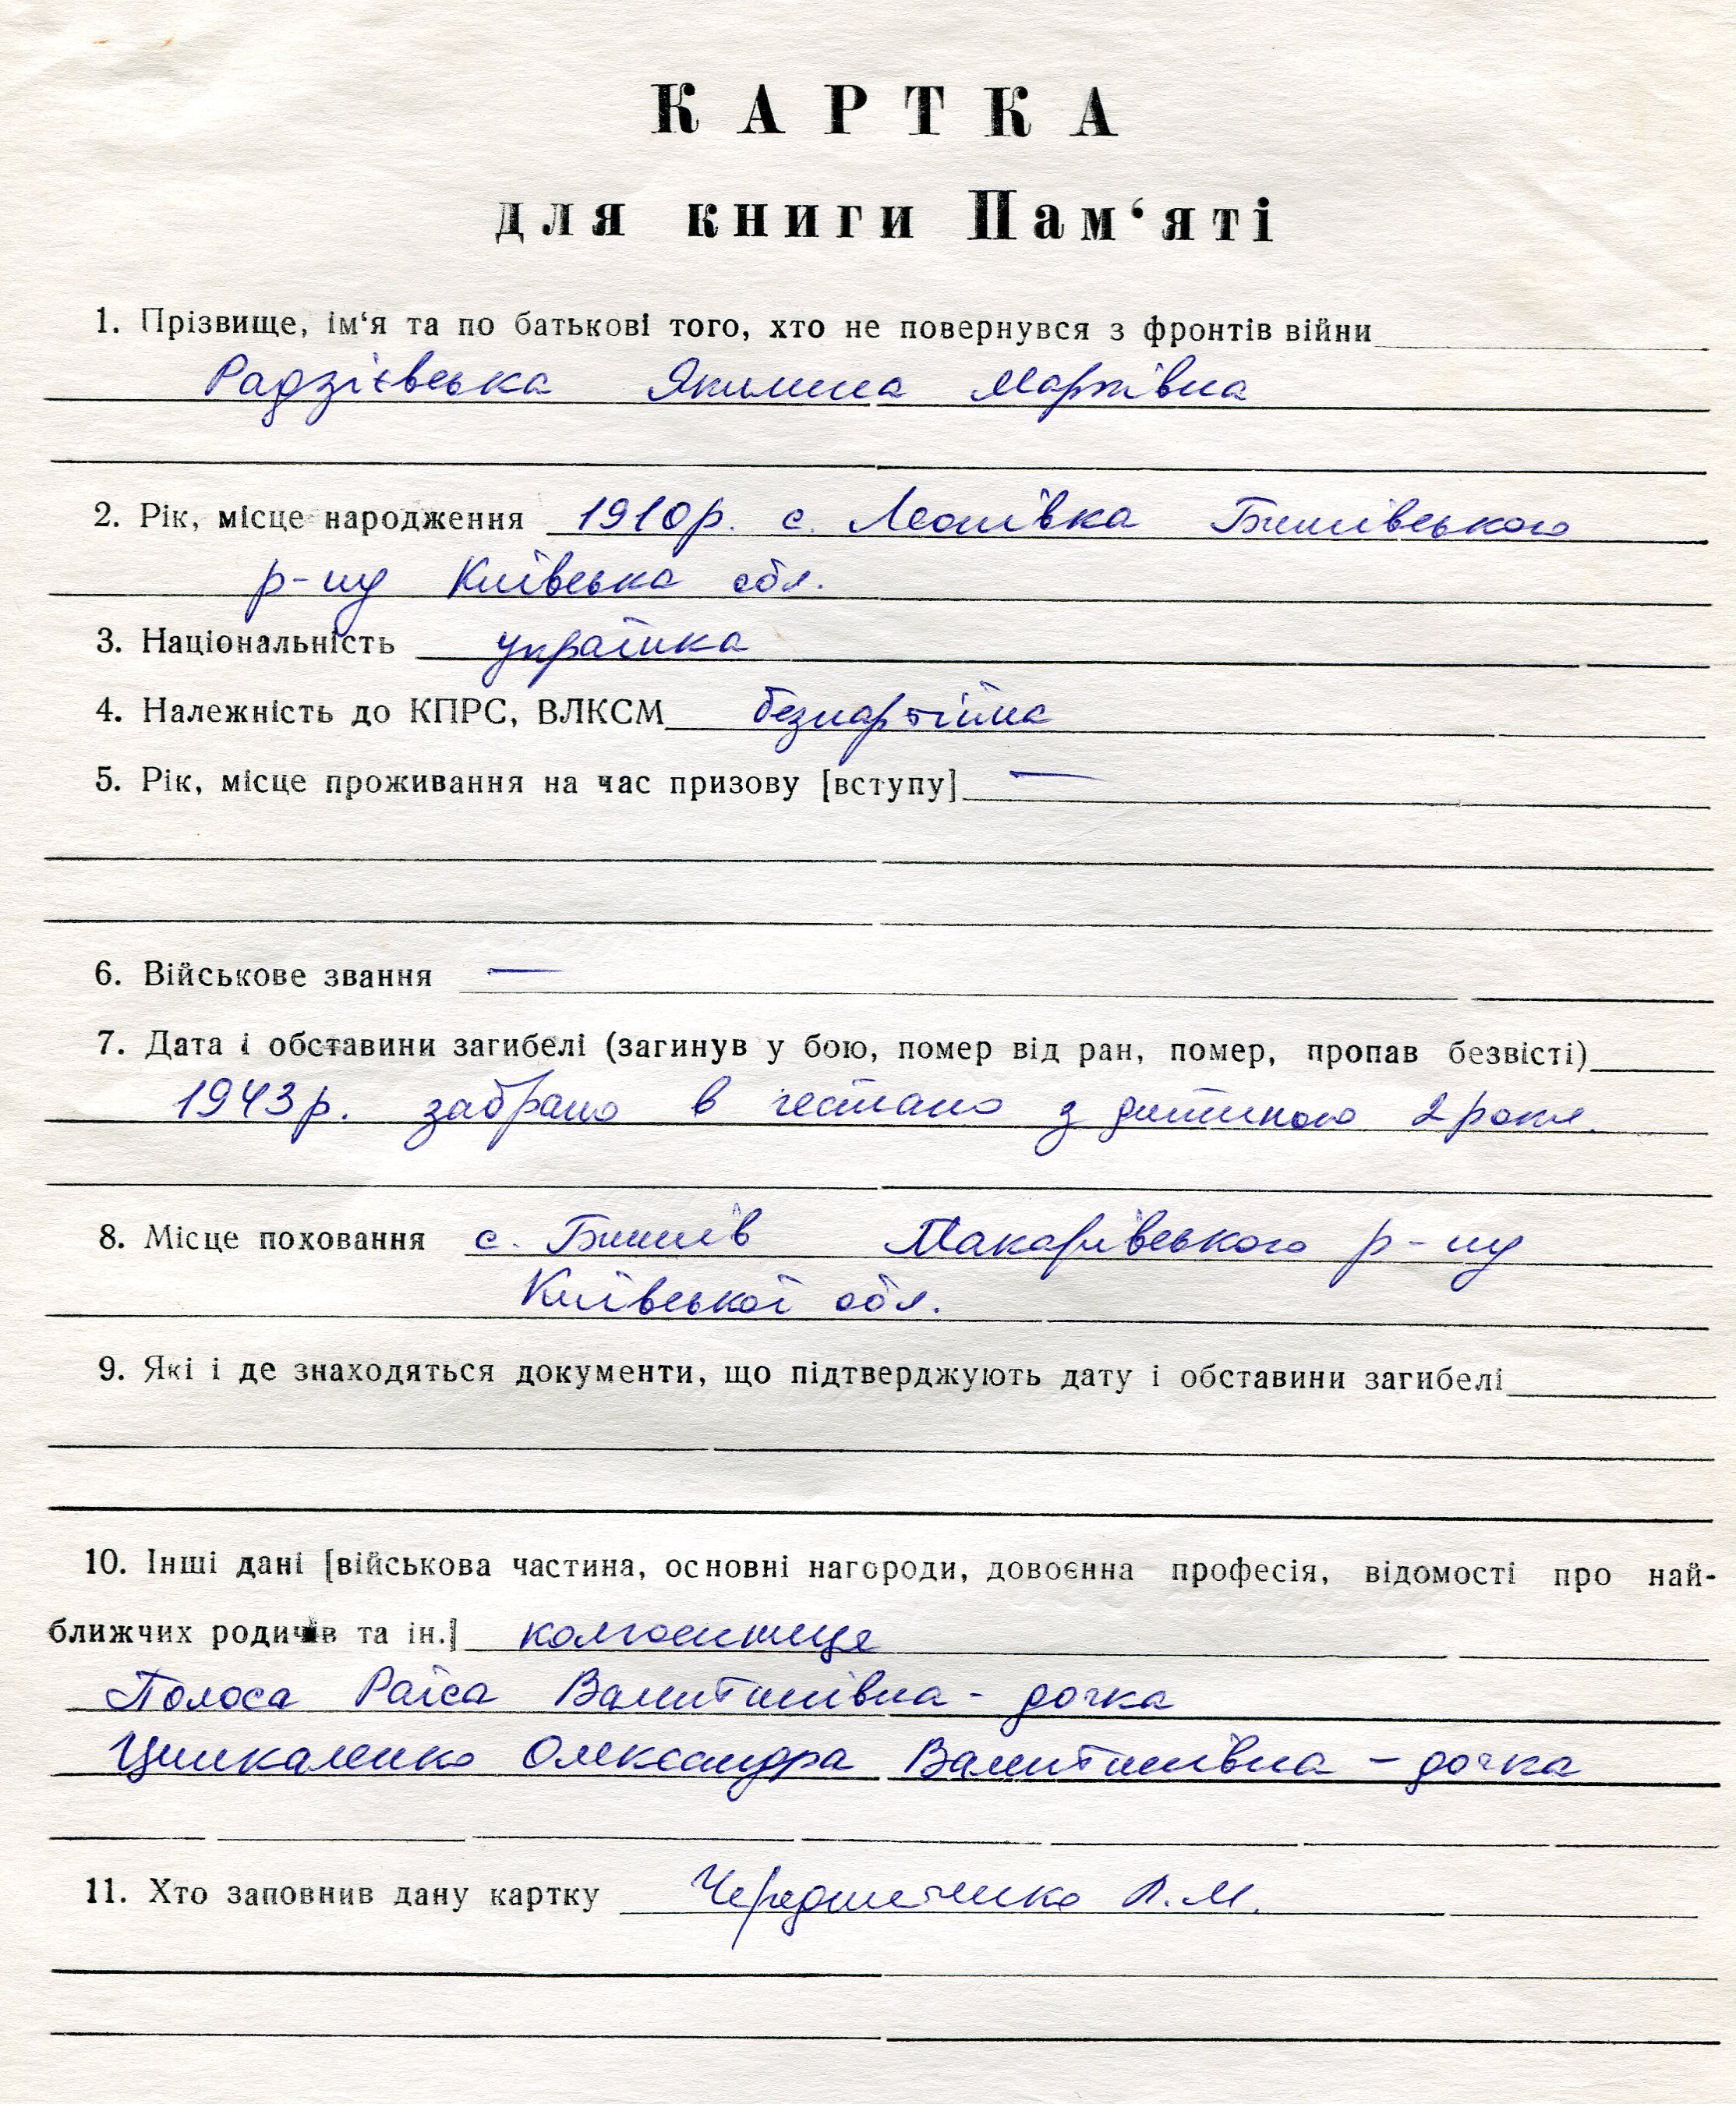 КАРТКА
для книги Пам‘яті
1. Прізвище, ім‘я та по батькові того, хто не повернувся з фронтів війни
Радзієвська Якилина Марківна
2. Рік, місце народження 1910р. с. Леонівка Бишівського
р-ну Київська обл.
3. Національність українка
4. Належність до КПРС, ВЛКСМ безпартійна
5. Рік, місце проживання на час призову [вступу] —
6. Військове звання —
7. Дата і обставини загибелі (загинув у бою, помер від ран, помер, пропав безвісті)
1943р. забрано в гестапо з дитиною 2 роки.
8. Місце поховання с. Бишів Макарівського р-ну
Київської обл.
9. Які і де знаходяться документи, що підтверджують дату і обставини загибелі
10. Інші дані [військова частина, основні нагороди, довоєнна професія, відомості про най-
ближчих родичів та ін.] колгоспниця
Полоса Раїса Валентинівна - дочка
Олександра Валентинівна - дочка
11. Хто заповнив дану картку Чередниченко Л.М.